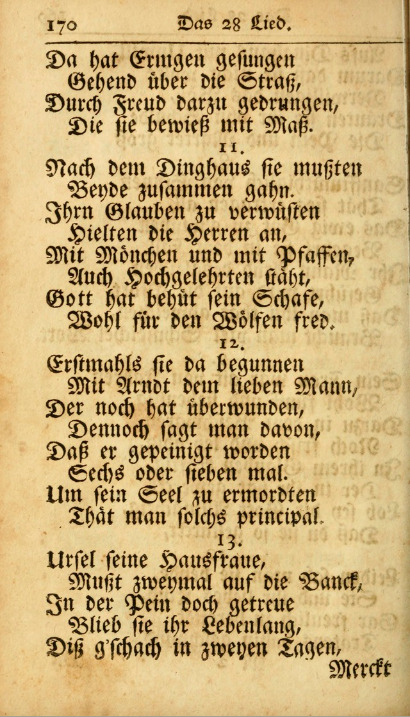 170 Das 28 Lied.
Da hat Ermgen gesungen
Gehend über die Straß,
Durch Freud darzu gedrungen,
Die sie bewieß mit Maß.
11.
Nach dem Dinghaus sie mußten
Beyde zusammen gahn.
Ihrn Glauben zu verwüsten
Hielten die Herren an,
Mit Mönchen und mit Pfaffen,
Auch Hochgelehrten stäht,
Gott hat behüt sein Schafe,
Wohl für den Wölfen fred.
12.
Erstmahls sie da begunnen
Mit Arndt dem lieben Mann,
Der noch hat überwunden,
Dennoch sagt man davon,
Daß er gepeinigt worden
Sechs oder sieben mal.
Um sein Seel zu ermordten
Thät man solchs principal.
13.
Ursel seine Hausfraue,
Mußt zweymal auf die Banck,
In der Pein doch getreue
Blieb sie ihr Lebenlang,
Diß g'schach in zweyen Tagen,
Merckt